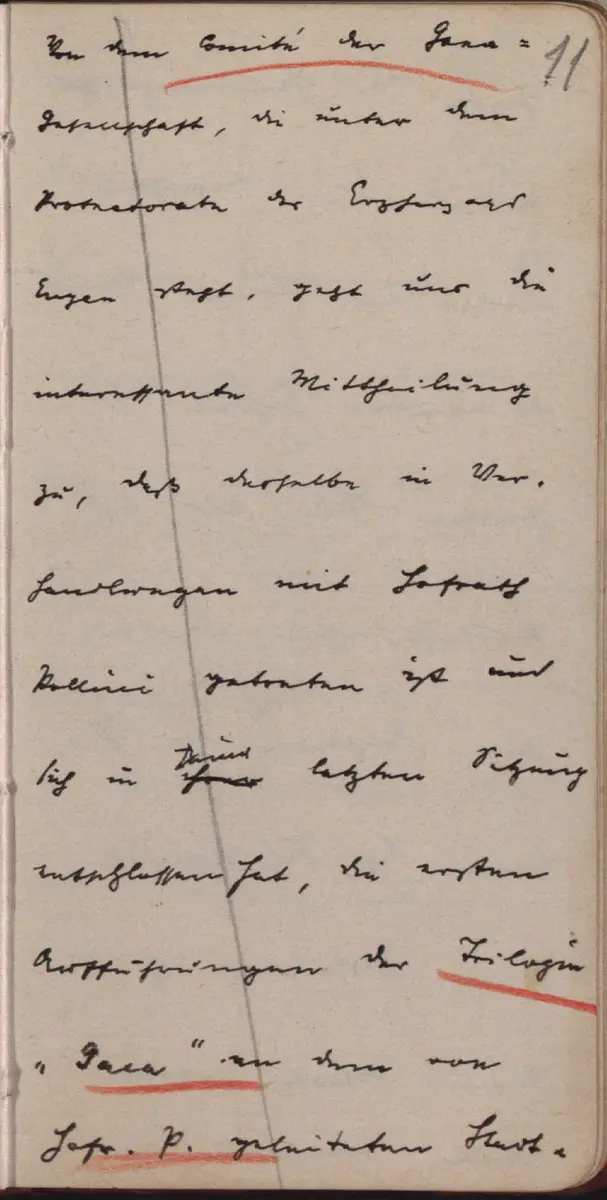 11
Von dem Comité der Gaea=
Gesellschaft, die unter dem
Protectorate des Erzherzogs
Eugen steht, geht uns die
interessante Mittheilung
zu, daß dasselbe in Ver-
handlungen mit Hofrath
Pollini getreten ist und
sich in letzten Sitzung
entschlossen hat, die ersten
Aufführungen der Trilogie
„Gaea" an dem von
Hofr. P. geleiteten Stadt-